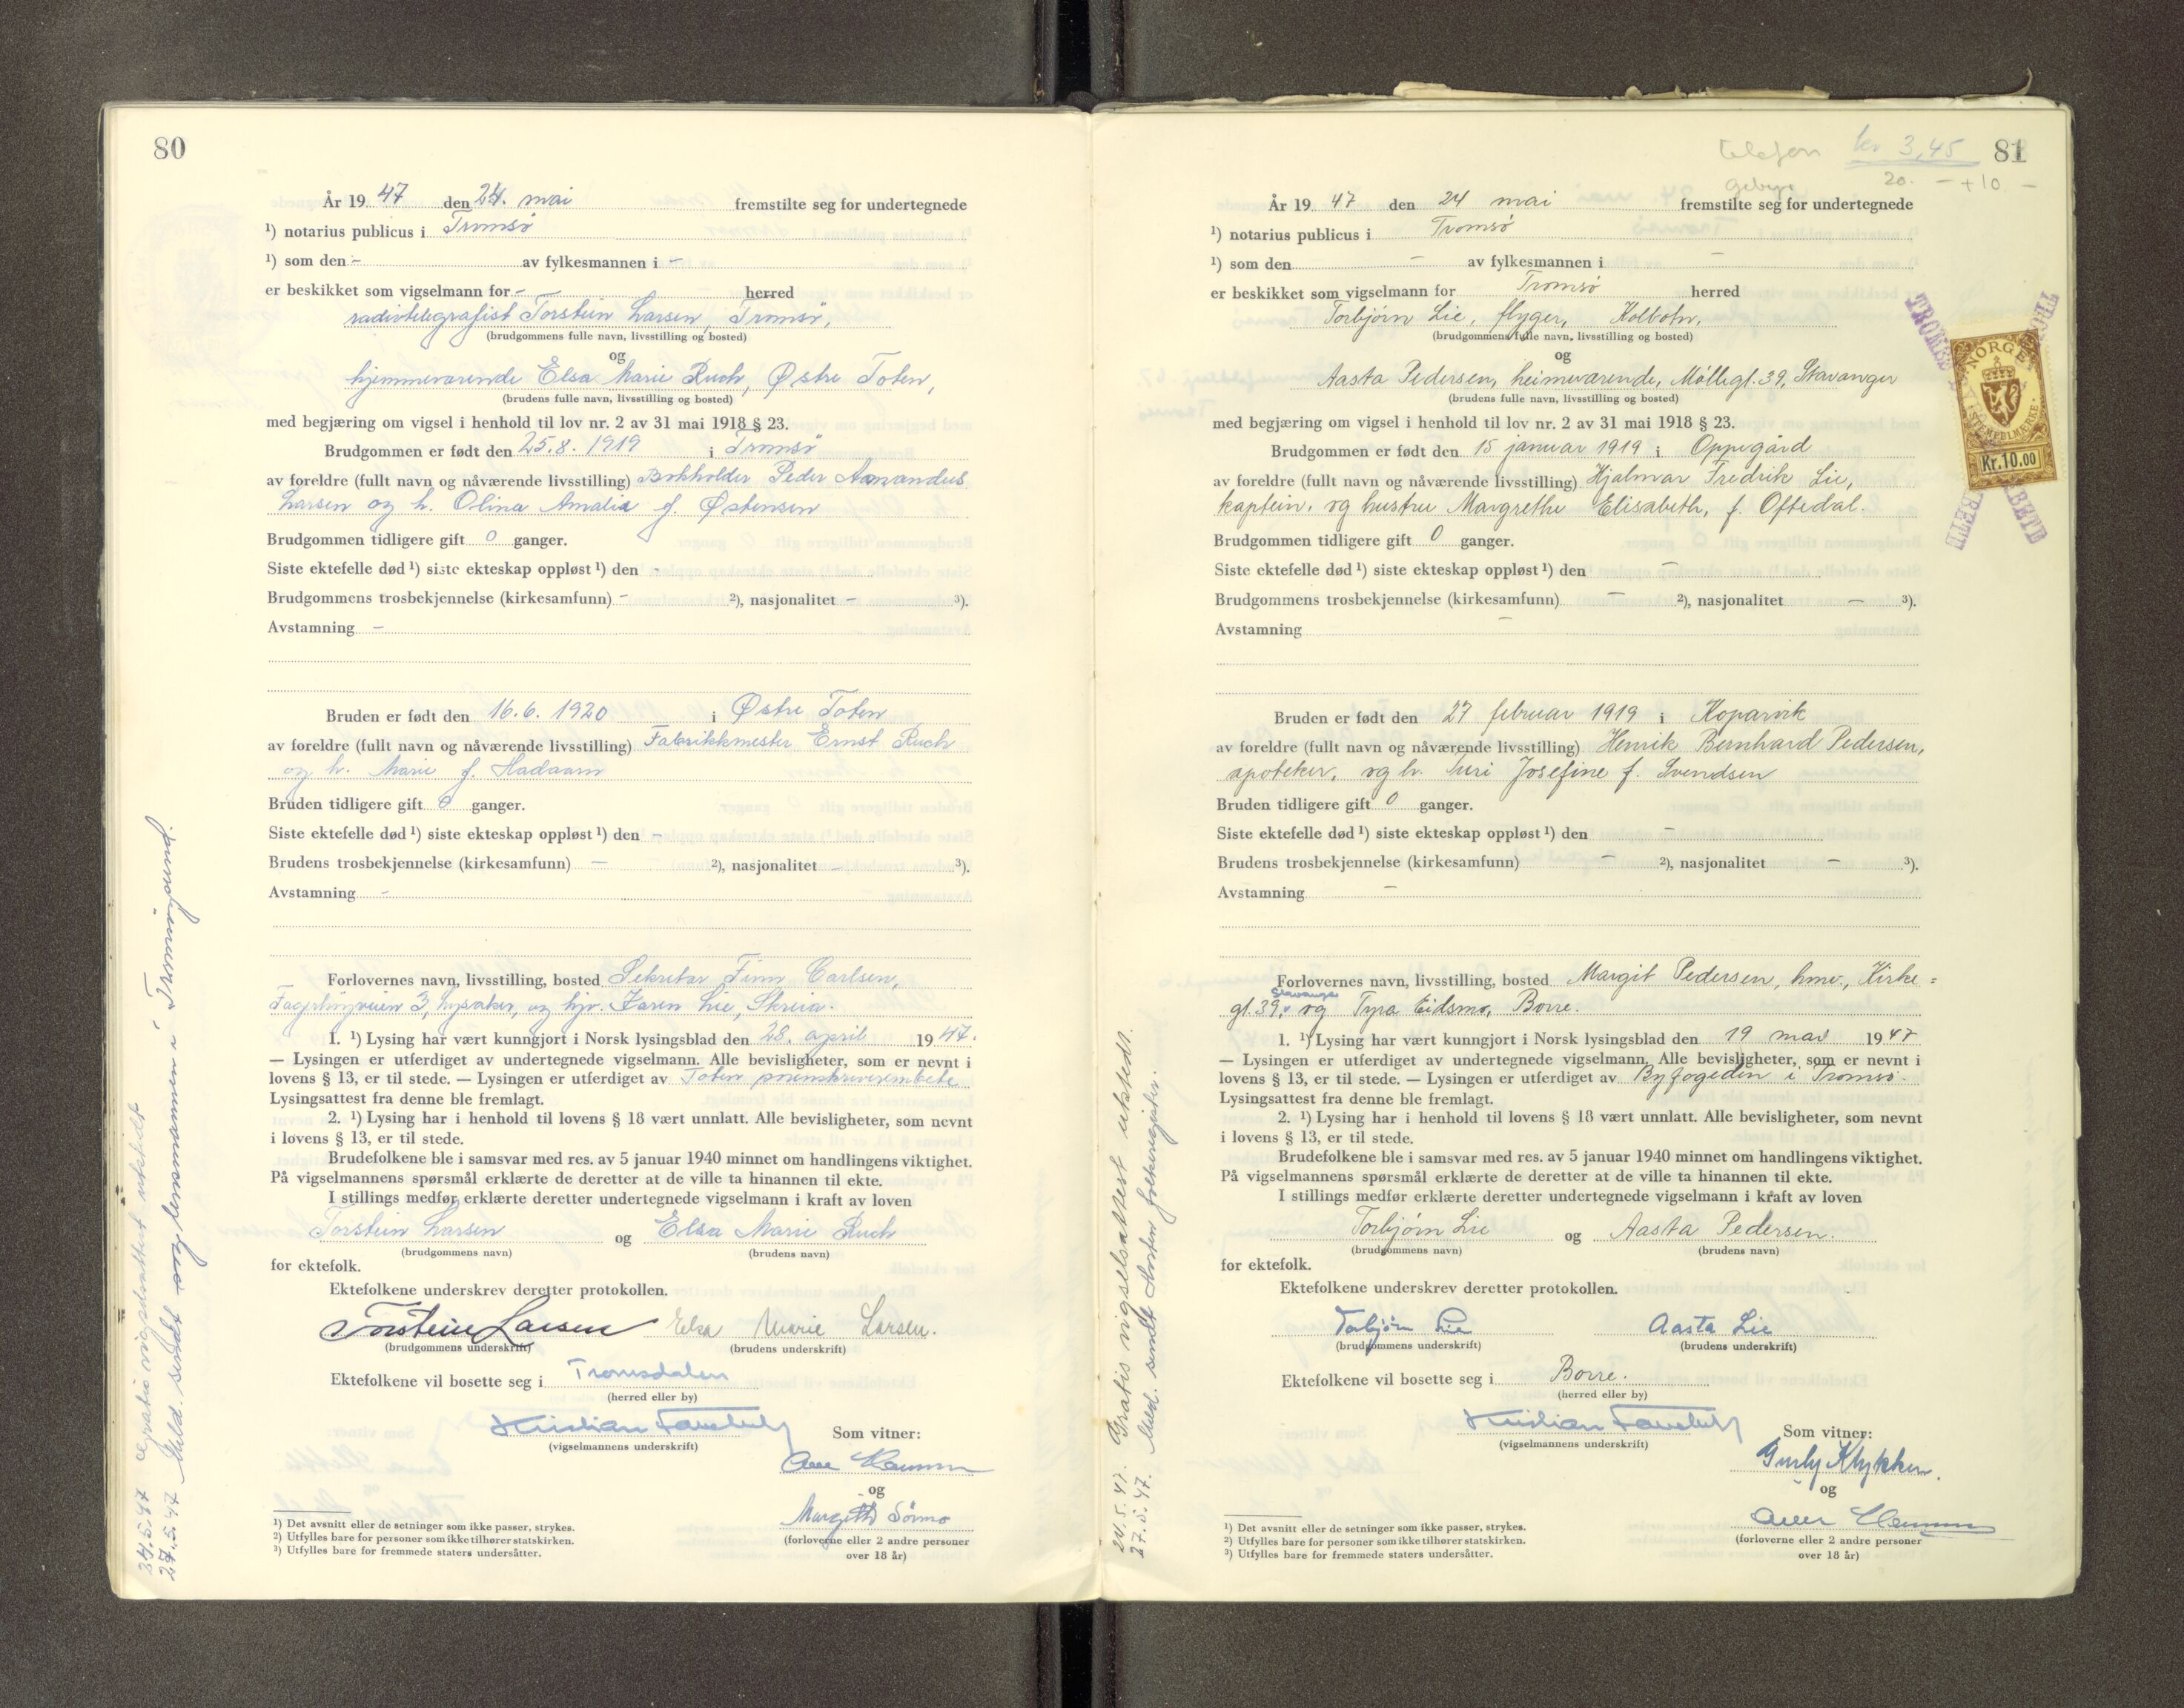 80
År 1947 den 24. mai fremstilte seg for undertegnede
¹) notarius publicus i Tromsø
¹) som den - av fylkesmannen i -
er beskikket som vigselmann for - herred
radiotelegrafist Torstein Larsen, Tromsø,
(brudgommens fulle navn, livsstilling og bosted)
og
hjemmeværende Elsa Marie Ruch, Østre Toten,
(brudens fulle navn, livsstilling og bosted)
med begjæring om vigsel i henhold til lov nr. 2 av 31 mai 1918 § 23.
Brudgommen er født den 25.8.1919 i Tromsø
av foreldre (fullt navn og nåværende livsstilling) Bokholder Peder Amandus
Larsen og h. Olina Amalia f. Østensen
Brudgommen tidligere gift 0 ganger.
Siste ektefelle død ¹) siste ekteskap oppløst ¹) den -
Brudgommens trosbekjennelse (kirkesamfunn) - ²), nasjonalitet - ³).
Avstamning -
Bruden er født den 16.6.1920 i Østre Toten
av foreldre (fullt navn og nåværende livsstilling) Fabrikkmester Ernst Ruch
og h. Marie f.
Bruden tidligere gift 0 ganger.
Siste ektefelle død ¹) siste ekteskap oppløst ¹) den -
Brudens trosbekjennelse (kirkesamfunn) - ²), nasjonalitet - ³).
Avstamning -
Forlovernes navn, livsstilling, bosted Sekretær Finn Carlsen,
3, Lysaker, og hjv. Karen Lie, Skreia.
1. ¹) Lysing har vært kunngjort i Norsk lysingsblad den 28. april 1947.
— Lysingen er utferdiget av undertegnede vigselmann. Alle bevisligheter, som er nevnt i
lovens § 13, er til stede. — Lysingen er utferdiget av Toten sorenskriverembete
Lysingsattest fra denne ble fremlagt.
2. ¹) Lysing har i henhold til lovens § 18 vært unnlatt. Alle bevisligheter, som nevnt
i lovens § 13, er til stede.
Brudefolkene ble i samsvar med res. av 5 januar 1940 minnet om handlingens viktighet.
På vigselmannens spørsmål erklærte de deretter at de ville ta hinannen til ekte.
I stillings medfør erklærte deretter undertegnede vigselmann i kraft av loven
Torstein Larsen og Elsa Marie Ruch
(brudgommens navn) (brudens navn)
for ektefolk.
Ektefolkene underskrev deretter protokollen.
Torstein Larsen Elsa Marie Larsen.
(brudgommens underskrift) (brudens underskrift)
Ektefolkene vil bosette seg i Tromsdalen
(herred eller by)
Kristian
(vigselmannens underskrift) Som vitner:
og
Margith Sörmo
(forloverne eller 2 andre personer
over 18 år)
¹) Det avsnitt eller de setninger som ikke passer, strykes.
²) Utfylles bare for personer som ikke tilhører statskirken.
³) Utfylles bare for fremmede staters undersåtter.
24.5.47 gratis vigselsattest utstedt
27.5.47 Meld. sendt soglensmannen i Tromsøysund.
telefon kr 3,45
81
gebyr 20.- + 10 -
År 1947 den 24 mai fremstilte seg for undertegnede
¹) notarius publicus i Tromsø
¹) som den - av fylkesmannen i -
er beskikket som vigselmann for Tromsø herred
Torbjørn Lie, flyger, Kolbotn,
(brudgommens fulle navn, livsstilling og bosted)
og
Aasta Pedersen, heimeværende, Møllegt. 39, Stavanger
(brudens fulle navn, livsstilling og bosted)
med begjæring om vigsel i henhold til lov nr. 2 av 31 mai 1918 § 23.
Brudgommen er født den 15 januar 1919 i Oppegård
av foreldre (fullt navn og nåværende livsstilling) Hjalmar Fredrik Lie,
kaptein, og hustru Margrethe Elisabeth, f. Oftedal.
Brudgommen tidligere gift 0 ganger.
Siste ektefelle død ¹) siste ekteskap oppløst ¹) den -
Brudgommens trosbekjennelse (kirkesamfunn) - ²), nasjonalitet - ³).
Avstamning -
Bruden er født den 27 februar 1919 i Kopervik
av foreldre (fullt navn og nåværende livsstilling) Henrik Bernhard Pedersen,
apoteker, og h. Turi Josefine f. Svendsen
Bruden tidligere gift 0 ganger.
Siste ektefelle død ¹) siste ekteskap oppløst ¹) den -
Brudens trosbekjennelse (kirkesamfunn) - ²), nasjonalitet - ³).
Avstamning -
Forlovernes navn, livsstilling, bosted Margit Pedersen, hmv., Kirke=
gt. 39, Stavanger og Tyra Eidsmo, Borre.
1. ¹) Lysing har vært kunngjort i Norsk lysingsblad den 19 mai 1947
— Lysingen er utferdiget av undertegnede vigselmann. Alle bevisligheter, som er nevnt i
lovens § 13, er til stede. — Lysingen er utferdiget av Byfogeden i Tromsø.
Lysingsattest fra denne ble fremlagt.
2. ¹) Lysing har i henhold til lovens § 18 vært unnlatt. Alle bevisligheter, som nevnt
i lovens § 13, er til stede.
Brudefolkene ble i samsvar med res. av 5 januar 1940 minnet om handlingens viktighet.
På vigselmannens spørsmål erklærte de deretter at de ville ta hinannen til ekte.
I stillings medfør erklærte deretter undertegnede vigselmann i kraft av loven
Torbjørn Lie og Aasta Pedersen.
(brudgommens navn) (brudens navn)
for ektefolk.
Ektefolkene underskrev deretter protokollen.
Torbjørn Lie Aasta Lie
(brudgommens underskrift) (brudens underskrift)
Ektefolkene vil bosette seg i Borre.
(herred eller by)
Kristian
(vigselmannens underskrift) Som vitner:
Gurly Klykken.
og
(forloverne eller 2 andre personer
over 18 år)
¹) Det avsnitt eller de setninger som ikke passer, strykes.
²) Utfylles bare for personer som ikke tilhører statskirken.
³) Utfylles bare for fremmede staters undersåtter.
24.5.47. Gratis vigselsattest utstedt.
27.5.47. Meld. sendt Horten folkeregister.
NORGE
STEMPELMERKE
Kr.10.00